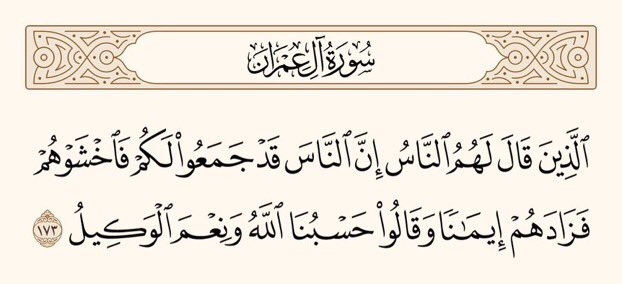 سُورَةُ آلِ عِمْرَانَ
ٱلَّذِينَ قَالَ لَهُمُ ٱلنَّاسُ إِنَّ ٱلنَّاسَ قَدْ جَمَعُوا۟ لَكُمْ فَٱخْشَوْهُمْ
فَزَادَهُمْ إِيمَـٰنًا وَقَالُوا۟ حَسْبُنَا ٱللَّهُ وَنِعْمَ ٱلْوَكِيلُ ١٧٣